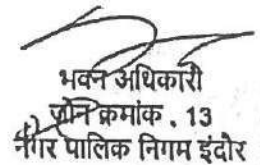 भवन अधिकारी
ज़ोन क्रमांक . 13
नगर पालिक निगम इंदौर